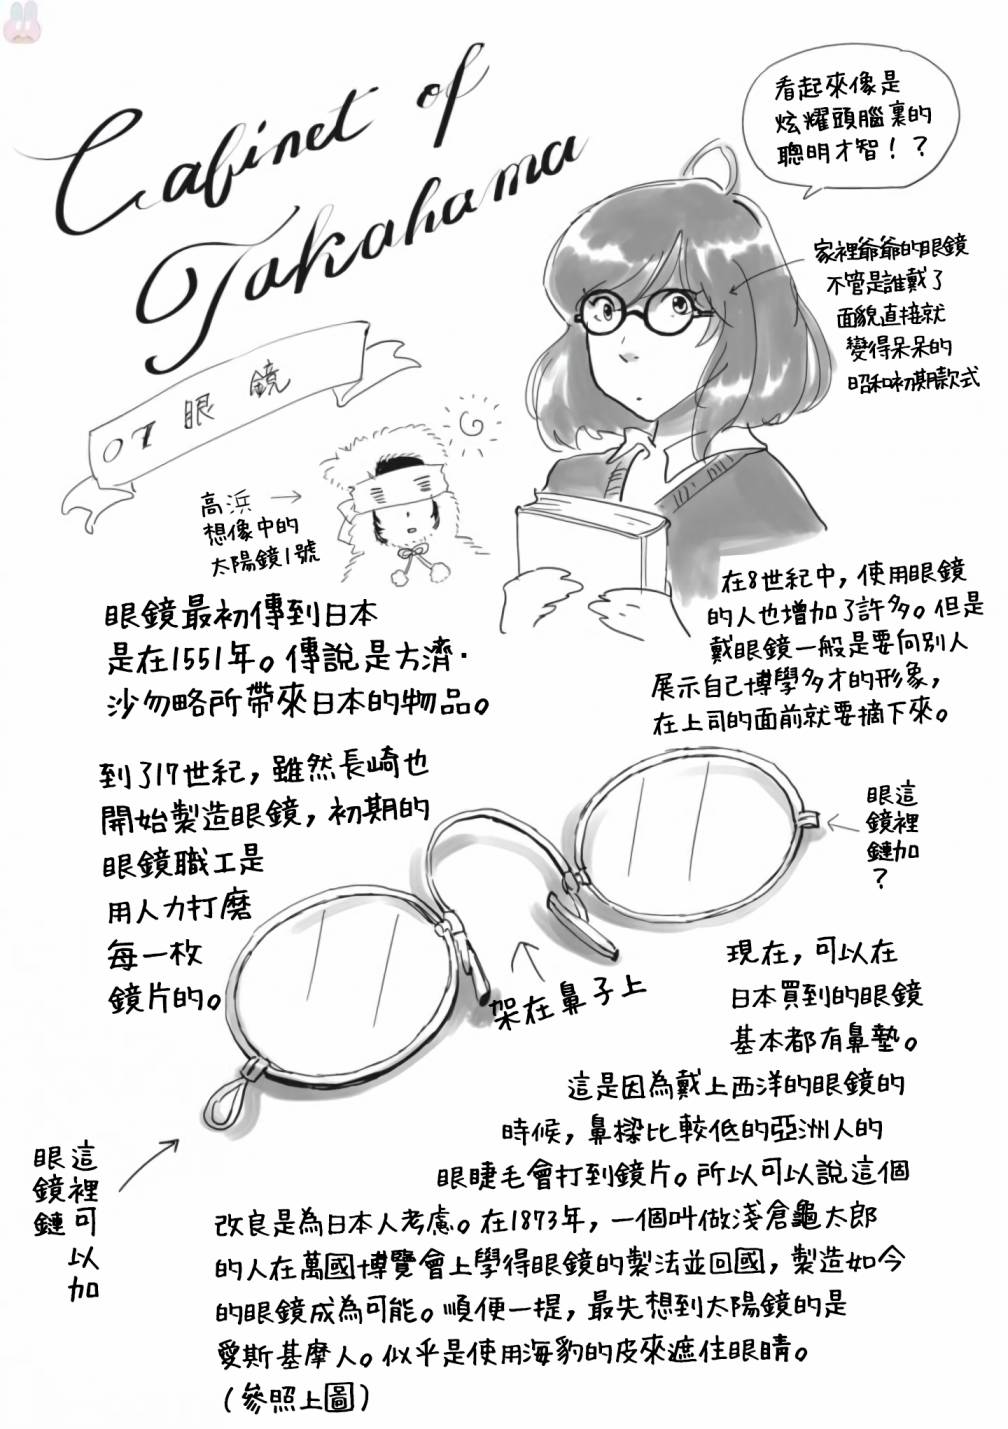 Cabinet of
Takahama
07 眼鏡
看起來像是
炫耀頭腦裏的
聰明才智！？
家裡爺爺的眼鏡
不管是誰戴了
面貌直接就
變得呆呆的
昭和初期款式
高浜
想像中的
太陽鏡1號
眼鏡最初傳到日本
是在1551年。傳說是方濟·
沙勿略所帶來日本的物品。
在8世紀中，使用眼鏡
的人也增加了許多。但是
戴眼鏡一般是要向別人
展示自己博學多才的形象，
在上司的面前就要摘下來。
到了17世紀，雖然長崎也
開始製造眼鏡，初期的
眼鏡職工是
用人力打磨
每一枚
鏡片的。
這裡加
眼鏡鏈？
架在鼻子上
這裡可以加
眼鏡鏈
現在，可以在
日本買到的眼鏡
基本都有鼻墊。
這是因為戴上西洋的眼鏡的
時候，鼻樑比較低的亞洲人的
眼睫毛會打到鏡片。所以可以說這個
改良是為日本人考慮。在1873年，一個叫做淺倉龜太郎
的人在萬國博覽會上學得眼鏡的製法並回國，製造如今
的眼鏡成為可能。順便一提，最先想到太陽鏡的是
愛斯基摩人。似乎是使用海豹的皮來遮住眼睛。
（參照上圖）